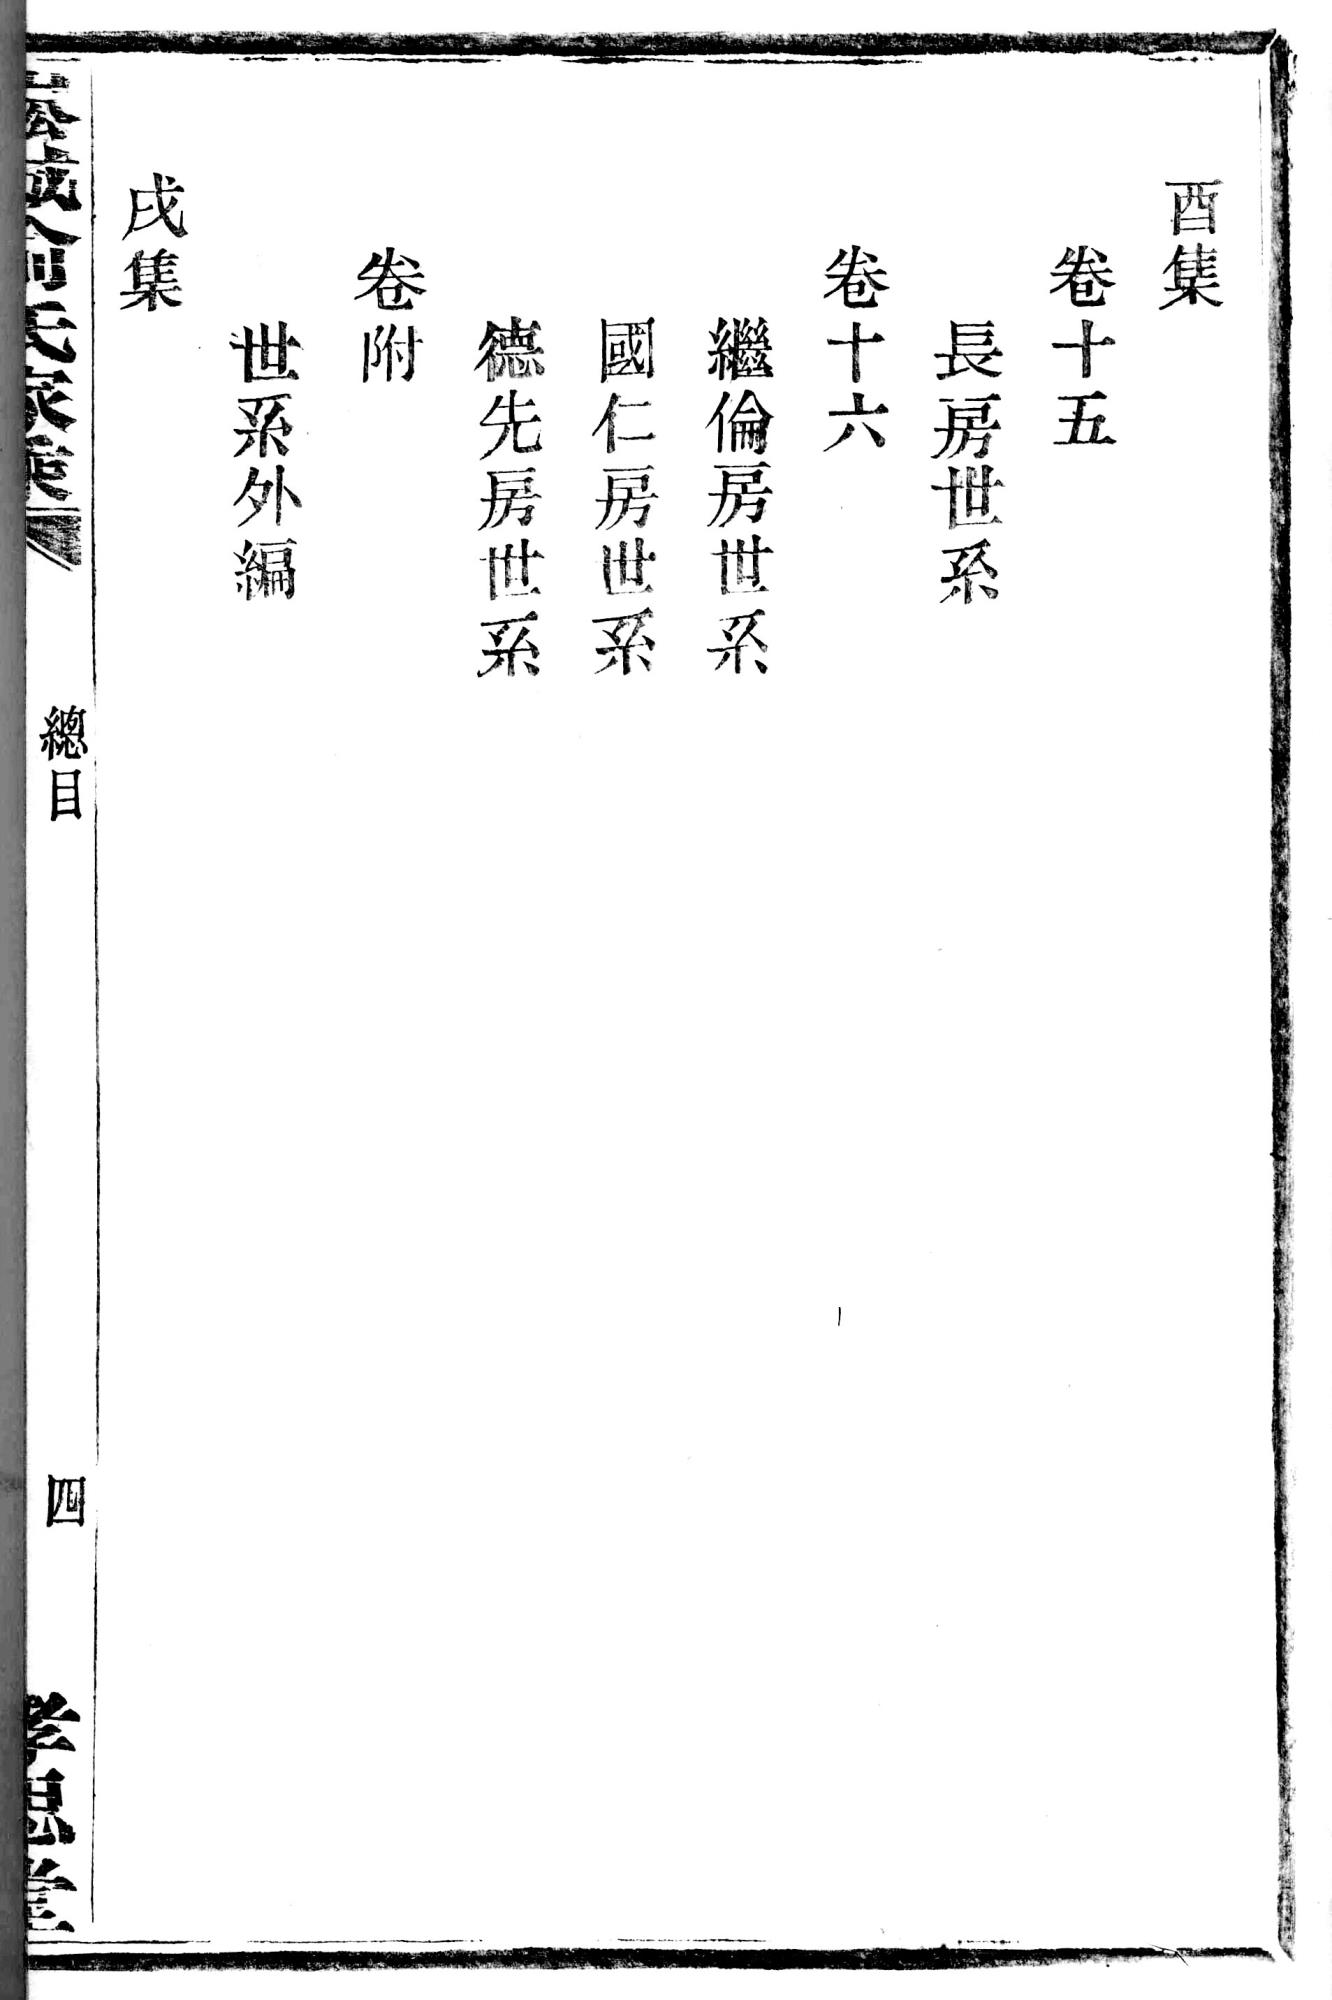 酉集
卷十五
長房世系
卷十六
繼倫房世系
國仁房世系
德先房世系
卷附
世系外編
戌集
崧城俞氏家乘
總目
四
孝思堂